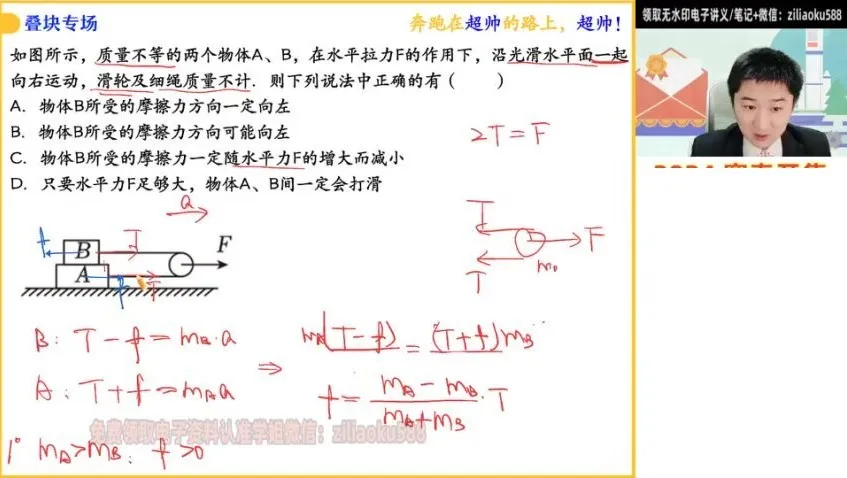 叠块专场
奔跑在超帅的路上，超帅！
领取无水印电子讲义/笔记+微信：ziliaoku588
如图所示，质量不等的两个物体A、B，在水平拉力F的作用下，沿光滑水平面一起
向右运动，滑轮及细绳质量不计．则下列说法中正确的有（　　）
A．物体B所受的摩擦力方向一定向左
B．物体B所受的摩擦力方向可能向左
C．物体B所受的摩擦力一定随水平力F的增大而减小
D．只要水平力F足够大，物体A、B间一定会打滑
2T=F
a
T
F
T
m₀
f
B
T
F
A
f
T
B: T-f=mB·a
A: T+f=mAa
⇒
mA(T-f)=(T+f)mB
f=(mA-mB)/(mA+mB)·T
免费领取电子资料认准学姐微信：ziliaoku588
1° mA>mB: f>0